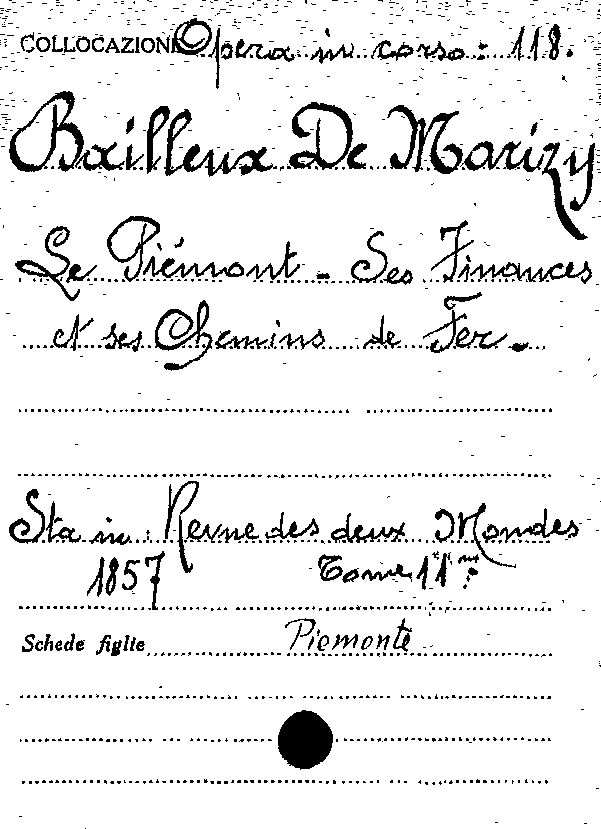 COLLOCAZIONE Opera in corso: 118.
Bailleux De Marizy
Le Piémont - Ses Finances
et ses Chemins de Fer.
Sta in: Revue des deux Mondes
1857 Tome 11me
Schede figlie Piemonte